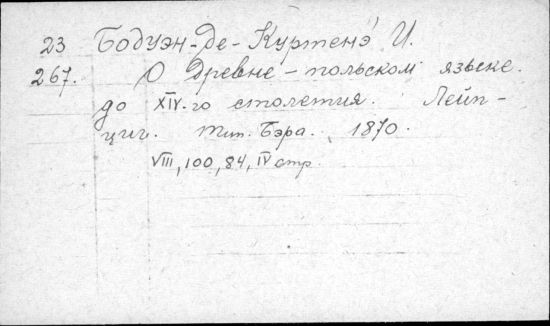 23 Бодуэн-де-Куртенэ И.
267. О Древне-польском языке.
до XIV-го столетия. Лейп-
циг. Тип. Бэра. 1870.
VIII, 100, 84, IV стр.